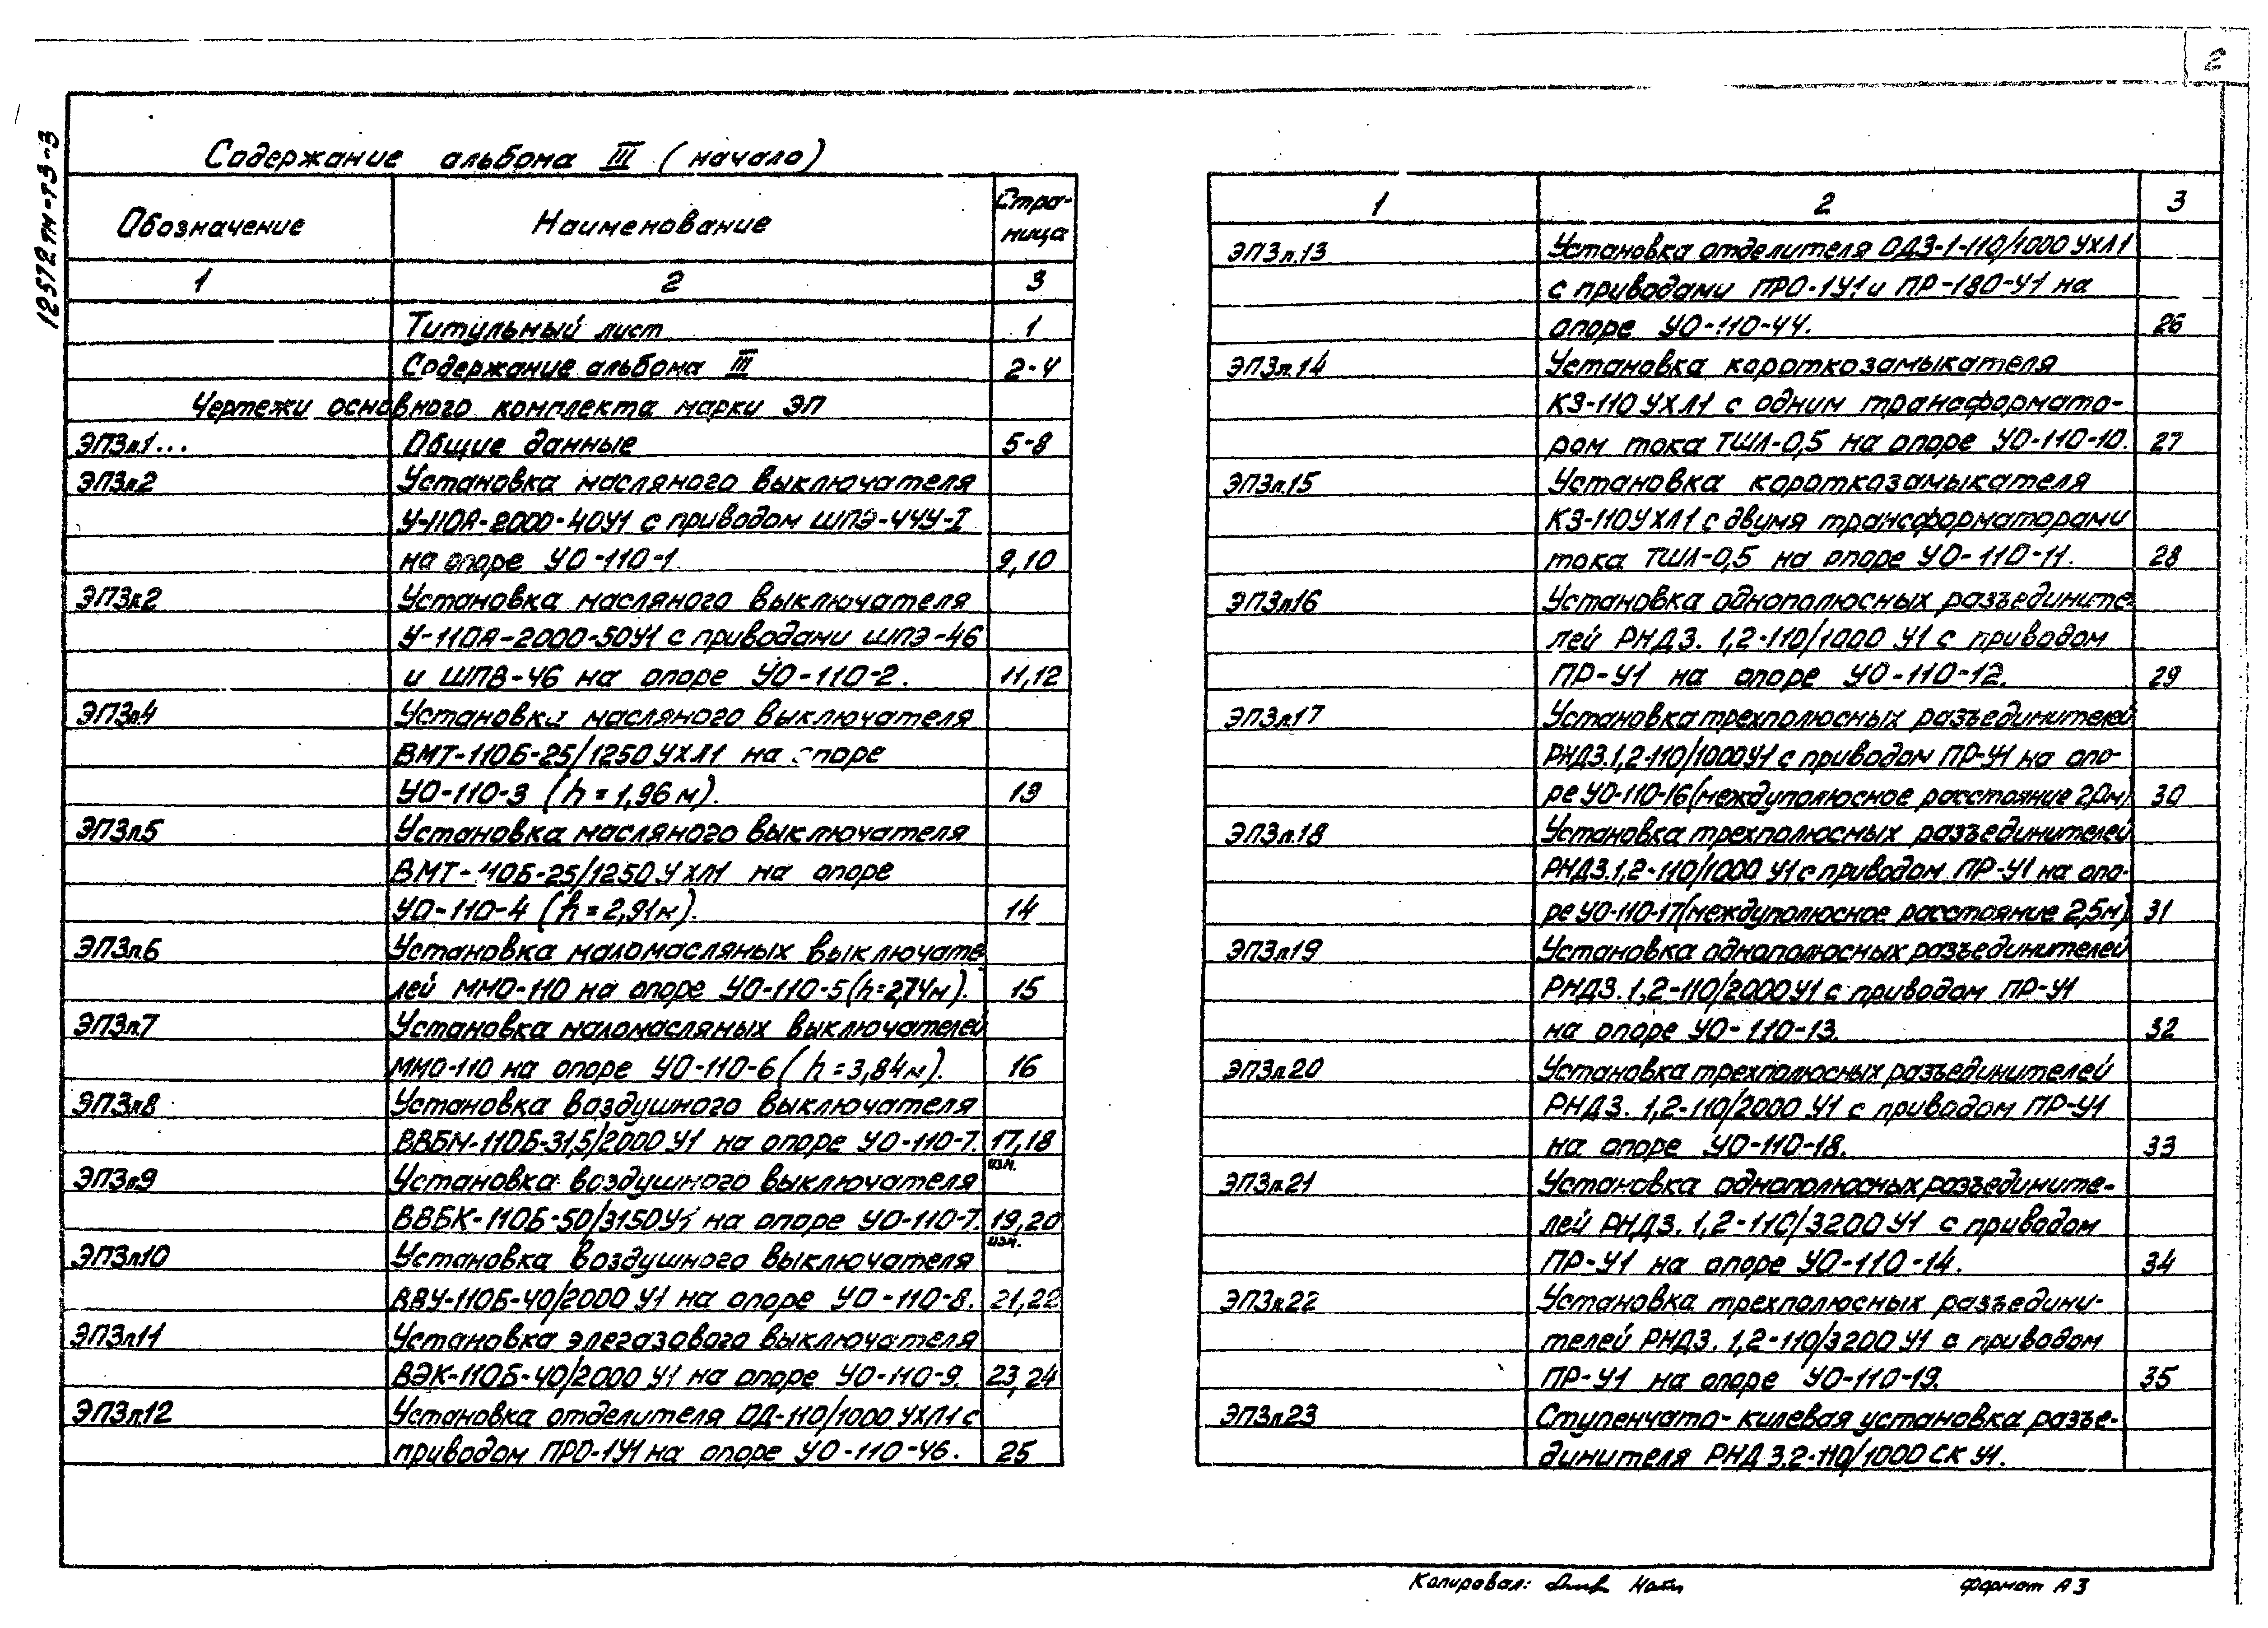 2
12572тм-т3-3
Содержание альбома III (начало)
Обозначение Наименование Стра-
ница
1 2 3
Титульный лист 1
Содержание альбома III 2-4
Чертежи основного комплекта марки ЭП
ЭП3л.1... Общие данные 5-8
ЭП3л2 Установка масляного выключателя
У-110А-2000-40У1 с приводом ШПЭ-44У-I
на опоре УО-110-1. 9,10
ЭП3л2 Установка масляного выключателя
У-110А-2000-50У1 с приводами ШПЭ-46
и ШПВ-46 на опоре УО-110-2. 11,12
ЭП3л4 Установка масляного выключателя
ВМТ-110Б-25/1250 УХЛ1 на опоре
УО-110-3 (h=1,96м). 13
ЭП3л5 Установка масляного выключателя
ВМТ-110Б-25/1250 УХЛ1 на опоре
УО-110-4 (h=2,91м). 14
ЭП3л6 Установка маломасляных выключате
лей ММО-110 на опоре УО-110-5(h=2,74м). 15
ЭП3л7 Установка маломасляных выключателей
ММО-110 на опоре УО-110-6 (h=3,84м). 16
ЭП3л8 Установка воздушного выключателя
ВВБМ-110Б-31,5/2000 У1 на опоре УО-110-7. 17,18
изм.
ЭП3л9 Установка воздушного выключателя
ВВБК-110Б-50/3150У1 на опоре УО-110-7. 19,20
изм.
ЭП3л10 Установка воздушного выключателя
ВВУ-110Б-40/2000 У1 на опоре УО-110-8. 21,22
ЭП3л11 Установка элегазового выключателя
ВЭК-110Б-40/2000 У1 на опоре УО-110-9. 23,24
ЭП3л12 Установка отделителя ОД-110/1000 УХЛ1 с
приводом ПРО-1У1 на опоре УО-110-46. 25
1 2 3
ЭП3л.13 Установка отделителя ОДЗ-1-110/1000 УХЛ1
с приводами ПРО-1У1 и ПР-180-У1 на
опоре УО-110-44. 26
ЭП3л.14 Установка короткозамыкателя
КЗ-110 УХЛ1 с одним трансформато-
ром тока ТШЛ-0,5 на опоре УО-110-10. 27
ЭП3л.15 Установка короткозамыкателя
КЗ-110УХЛ1 с двумя трансформаторами
тока ТШЛ-0,5 на опоре УО-110-11. 28
ЭП3л16 Установка однополюсных разъедините-
лей РНДЗ. 1,2-110/1000 У1 с приводом
ПР-У1 на опоре УО-110-12. 29
ЭП3л.17 Установка трехполюсных разъединителей
РНДЗ.1,2-110/1000У1 с приводом ПР-У1 на опо-
ре УО-110-16(междуполюсное расстояние 2,0м) 30
ЭП3л.18 Установка трехполюсных разъединителей
РНДЗ.1,2-110/1000 У1 с приводом ПР-У1 на опо-
ре УО-110-17(междуполюсное расстояние 2,5м) 31
ЭП3л19 Установка однополюсных разъединителей
РНДЗ.1,2-110/2000У1 с приводом ПР-У1
на опоре УО-110-13. 32
ЭП3л.20 Установка трехполюсных разъединителей
РНДЗ. 1,2-110/2000 У1 с приводом ПР-У1
на опоре УО-110-18. 33
ЭП3л.21 Установка однополюсных разъедините-
лей РНДЗ. 1,2-110/3200У1 с приводом
ПР-У1 на опоре УО-110-14. 34
ЭП3л22 Установка трехполюсных разъедини-
телей РНДЗ. 1,2-110/3200 У1 с приводом
ПР-У1 на опоре УО-110-19. 35
ЭП3л23 Ступенчато-килевая установка разъе-
динителя РНДЗ.2-110/1000 СК У1.
Копировал: формат А3